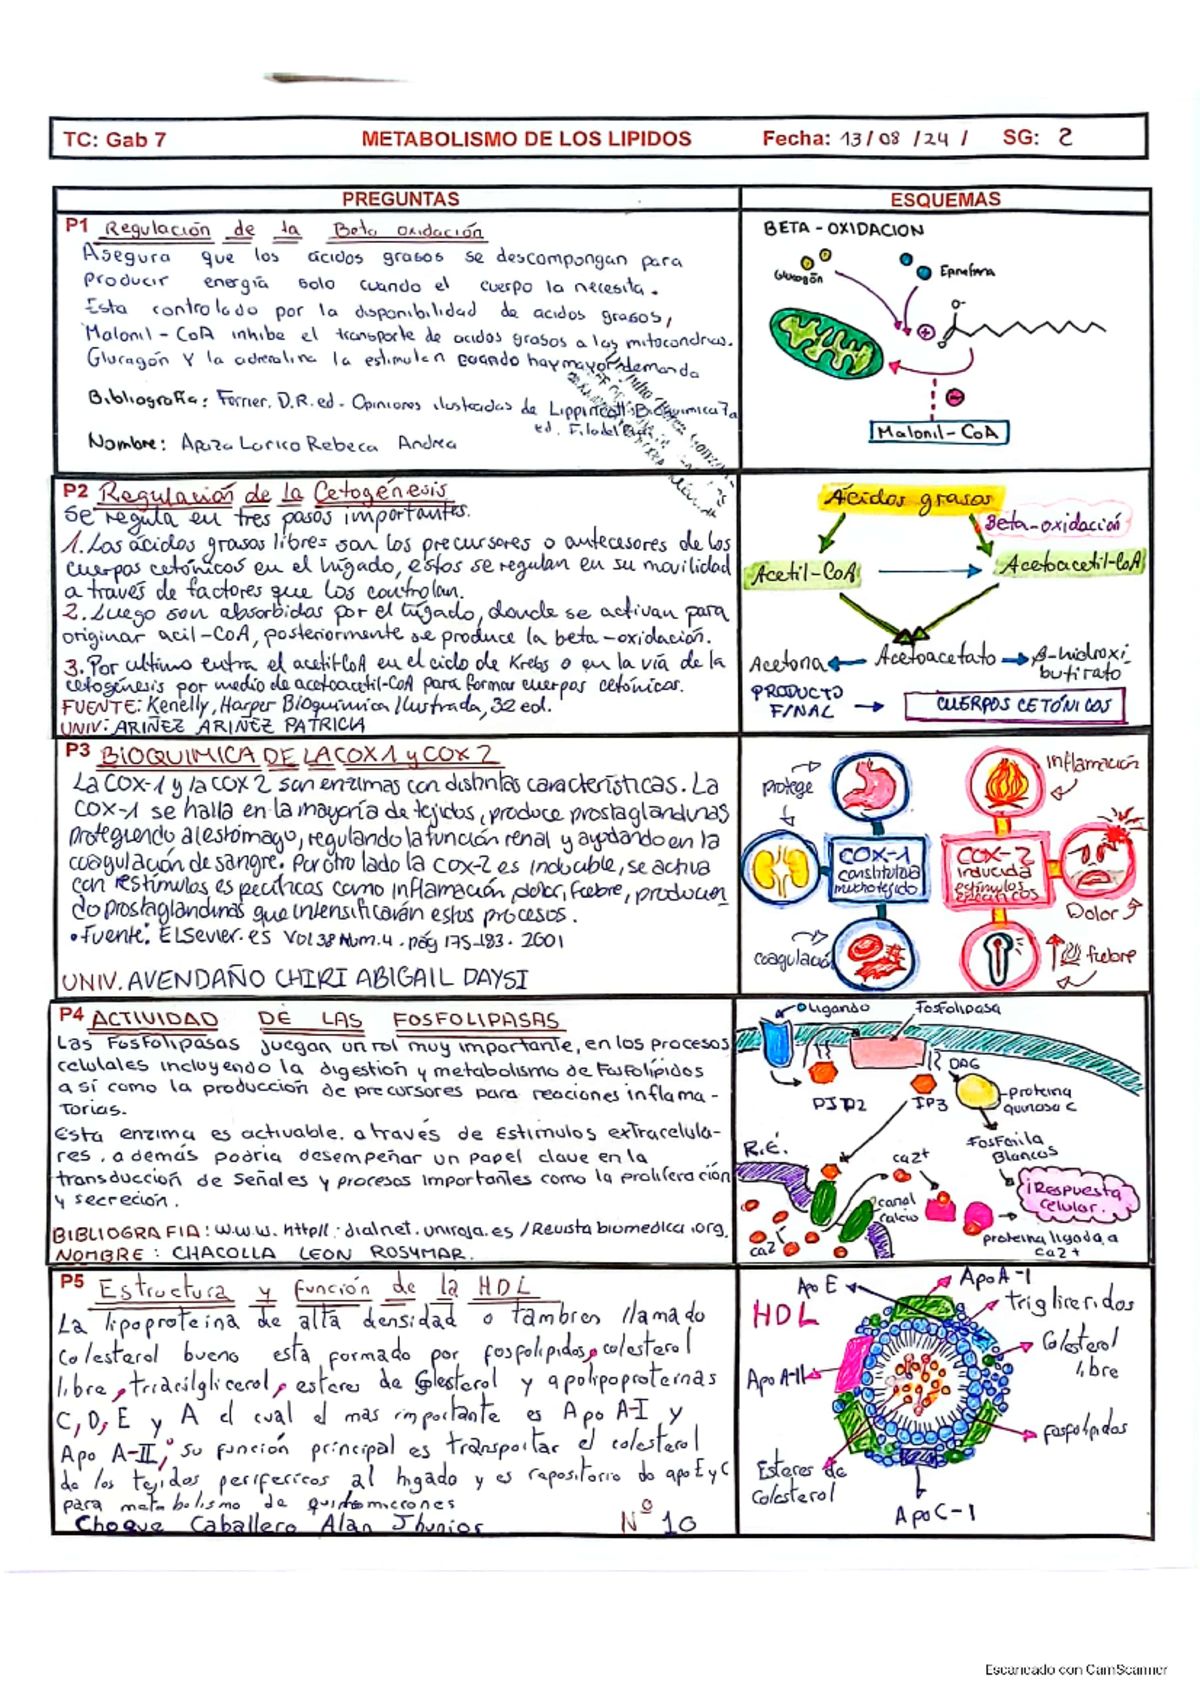 TC: Gab 7 METABOLISMO DE LOS LIPIDOS Fecha: 13/08/24/ SG: 2
PREGUNTAS
ESQUEMAS
P1 Regulación de la Beta oxidación
Asegura que los ácidos grasos se descompongan para
Producir energía solo cuando el cuerpo la necesita.
Esta controlado por la disponibilidad de acidos grasos,
Malonil-CoA inhibe el transporte de acidos grasos a las mitocondrias.
Glucagón Y la adrenalina la estimulen cuando hay mayor demanda
Bibliografía: Ferrier. D.R. ed. Opiniones ilustradas de Lippincott: Bioquimica 7a
ed.
Nombre: Apaza Larico Rebeca Andrea
BETA-OXIDACION
Glucagón
Epinefrina
O-
O
+
-
Malonil-CoA
P2 Regulación de la Cetogénesis
Se regula en tres pasos importantes.
1. Los ácidos grasos libres son los precursores o antecesores de los
cuerpos cetónicos en el hígado, estos se regulan en su movilidad
a través de factores que los controlan.
2. Luego son absorbidos por el hígado, donde se activan para
originar acil-CoA, posteriormente se produce la beta-oxidación.
3. Por ultimo entra el acetil-CoA en el ciclo de Krebs o en la vía de la
cetogénesis por medio de acetoacetil-CoA para formar cuerpos cetónicos.
FUENTE: Kenelly, Harper Bioquímica Ilustrada, 32 ed.
UNIV: ARIÑEZ ARIÑEZ PATRICIA
Ácidos grasos
Beta-oxidación
Acetil-CoA
Acetoacetil-CoA
Acetona
Acetoacetato
β-hidroxi-
butirato
PRODUCTO
FINAL
CUERPOS CETÓNICOS
P3 BIOQUIMICA DE LA COX 1 y COX 2
La COX-1 y la COX 2 son enzimas con distintas características. La
COX-1 se halla en la mayoría de tejidos, produce prostaglandinas
protegiendo al estómago, regulando la función renal y ayudando en la
coagulación de sangre. Por otro lado la COX-2 es inducible, se activa
con estímulos específicos como inflamación, dolor, fiebre, producien
do prostaglandinas que intensificarán estos procesos.
• Fuente: ELSevier.es Vol 38 Num. 4. pág 175-183. 2001
UNIV. AVENDAÑO CHIRI ABIGAIL DAYSI
protege
COX-1
constitutiva
mucho tejido
coagulación
Inflamación
COX-2
inducida
estímulos
específicos
Dolor
fiebre
P4 ACTIVIDAD DE LAS FOSFOLIPASAS
Las Fosfolipasas juegan un rol muy importante, en los procesos
celulales incluyendo la digestión y metabolismo de Fosfolípidos
a sí como la producción de precursores para reaciones inflama-
torias.
Esta enzima es activable. a través de Estimulos extracelula-
res, a demás podria desempeñar un papel clave en la
transducción de Señales y procesos importantes como la proliferación
y secreción.
BIBLIOGRAFIA: w.w.w. http//: dialnet.unirioja.es /Revista biomedica.org.
NOMBRE: CHACOLLA LEON ROSYMAR.
Oligando
Fosfolipasa
PIP2
IP3
DAG
proteina
quinasa C
Fosforila
Blancos
R.E.
ca2+
canal
calcio
ca2
¡Respuesta
celular.
proteina ligada a
ca2+
P5 Estructura y función de la HDL
La lipoproteina de alta densidad o tambien llamado
Colesterol bueno esta formado por fosfolipidos, colesterol
libre, triacilglicerol, esteres de Colesterol y apolipoproteinas
C, D, E y A el cual el mas importante es Apo A-I y
Apo A-II, su función principal es transportar el colesterol
de los tejidos perifericos al higado y es repositorio de apo E y C
para metabolismo de quilomicrones
Choque Caballero Alan Jhunior Nº 10
HDL
Apo E
Apo A-I
Trigliceridos
Colesterol
libre
Apo A-II
fosfolipidos
Esteres de
Colesterol
Apo C-I
Escaneado con CamScanner